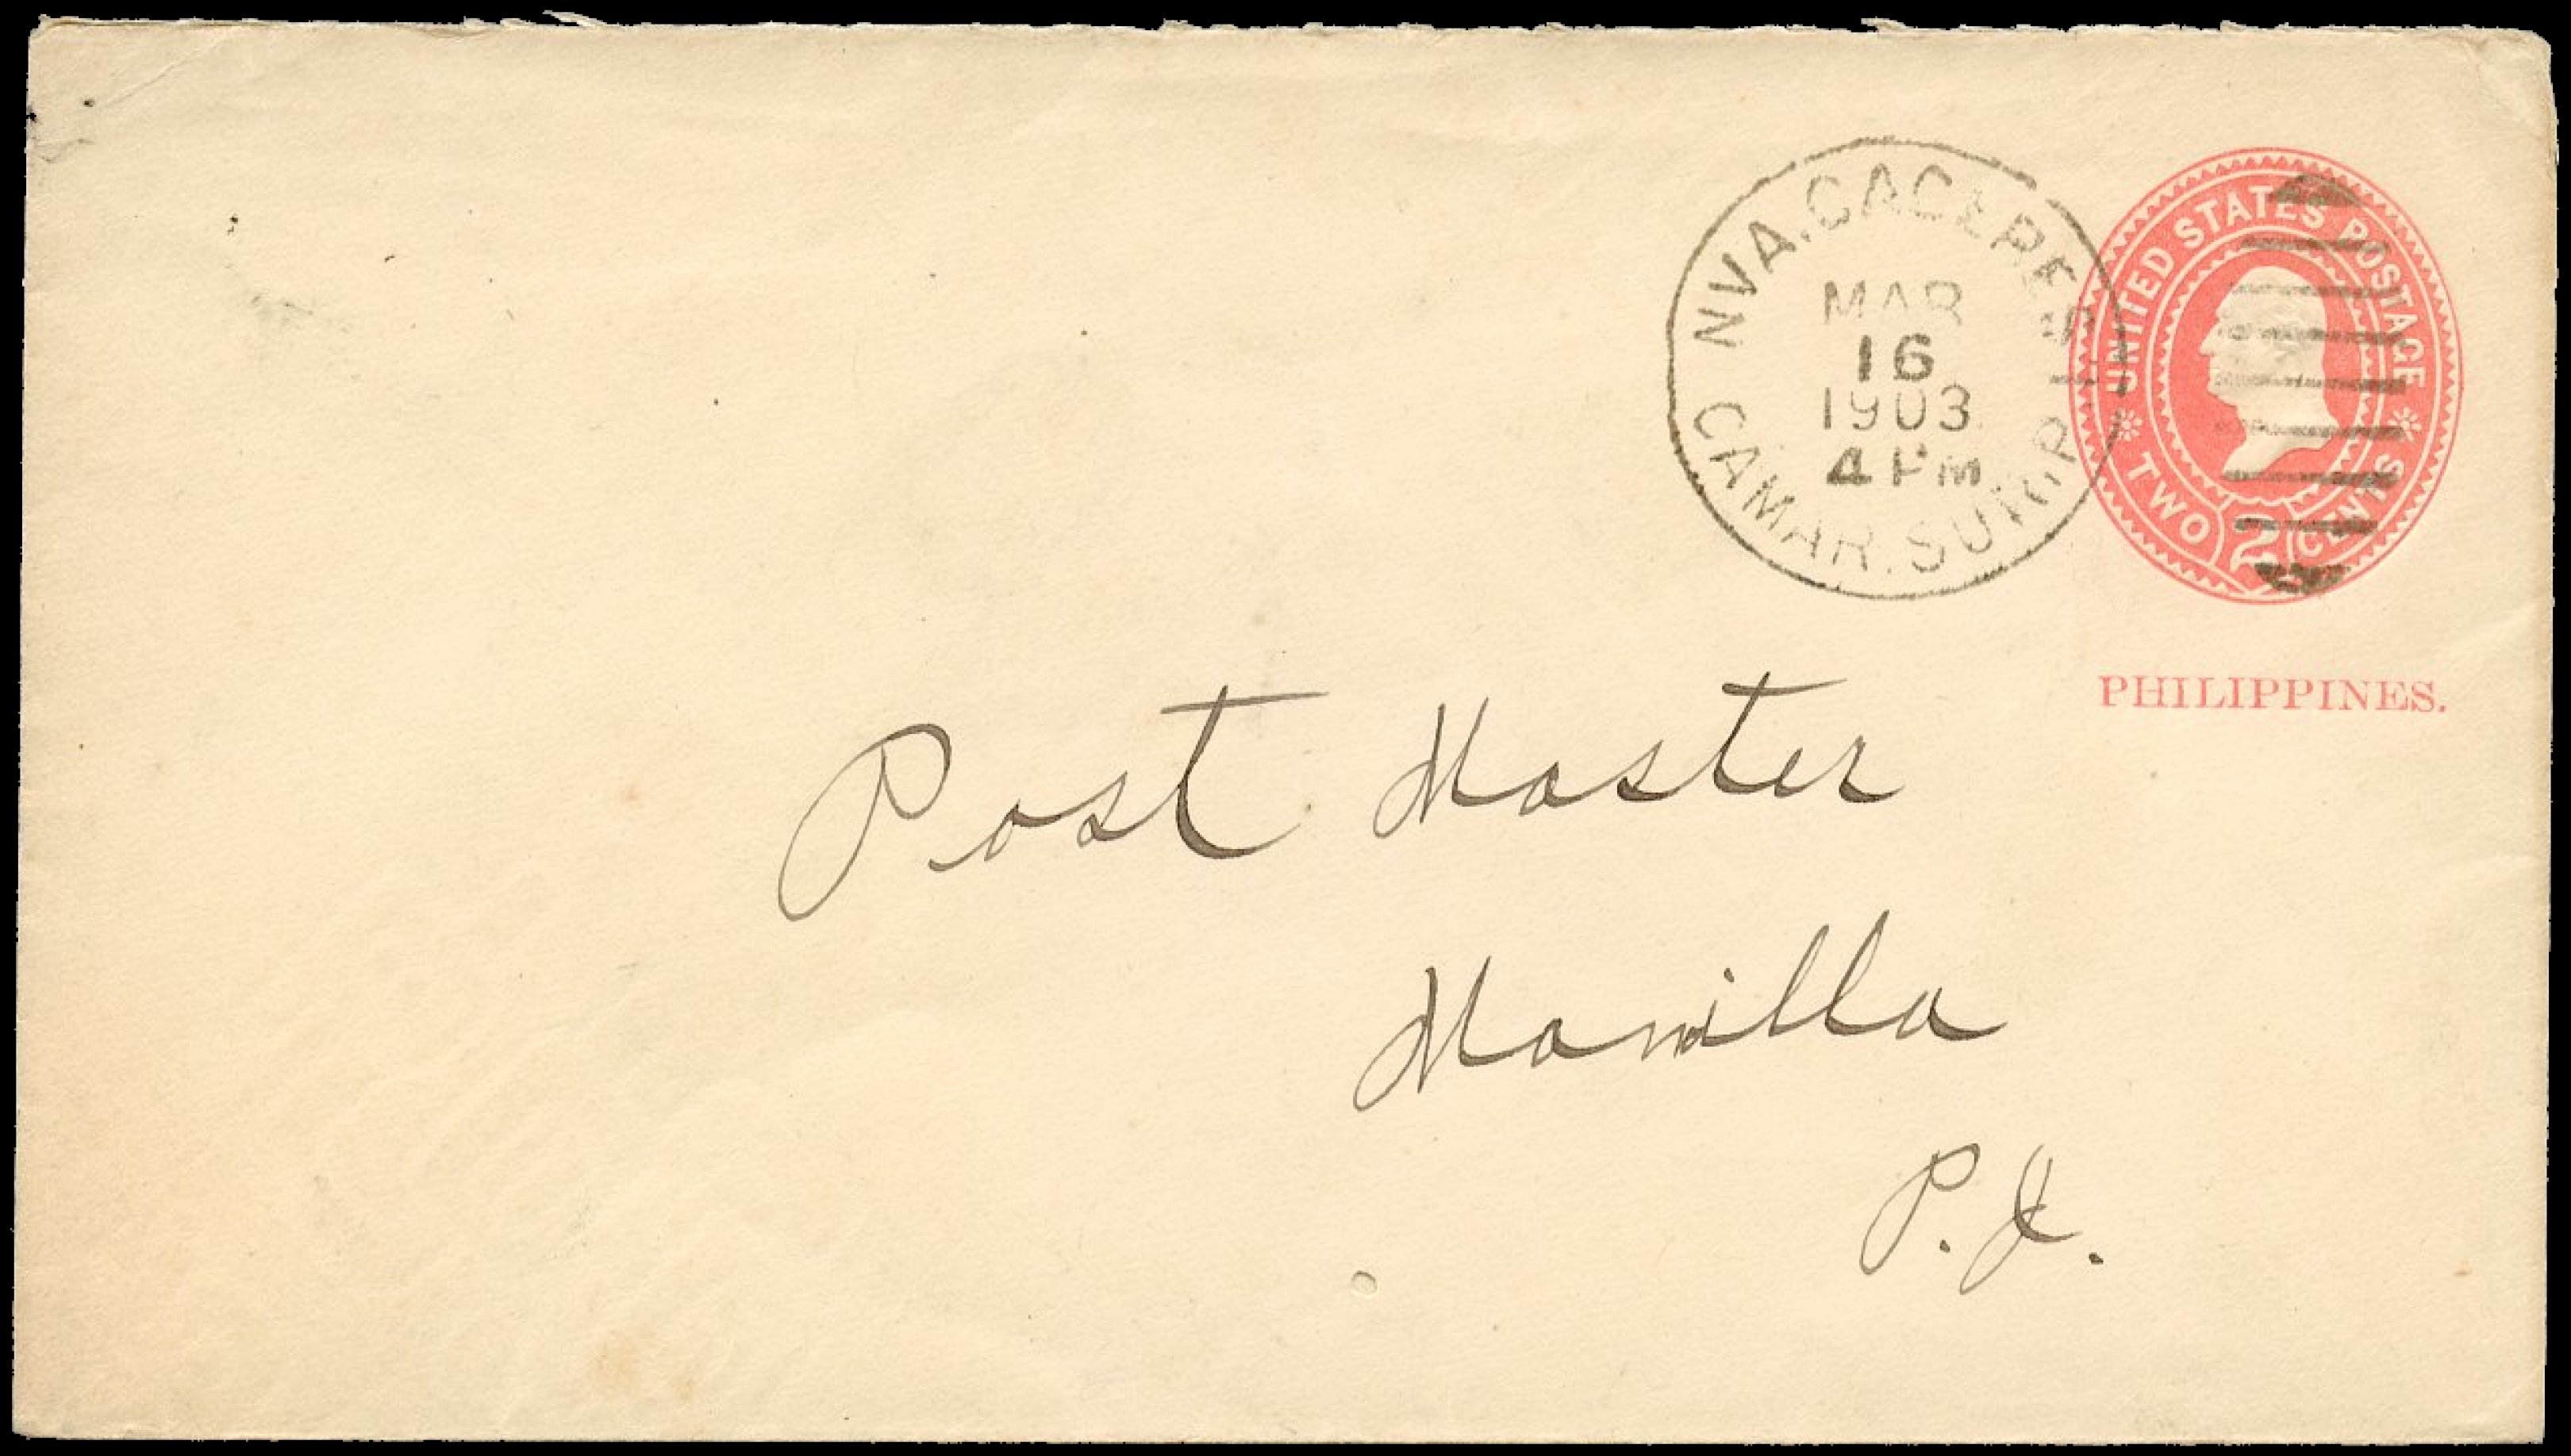 NVA. CACERES
MAR
16
1903
4 PM
CAMAR. SUR P.I.
UNITED STATES POSTAGE
TWO 2 CENTS
PHILIPPINES.
Post Master
Manilla
P. I.